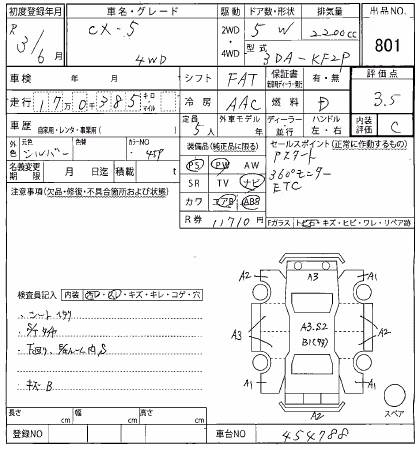 初度登録年月 車名・グレード 駆動 ドア数・形状 排気量 出品NO.
R 3/6月 CX-5 4WD 2WD ・ 4WD 5 W 2200cc 801
型式 3DA-KF2P
車検 年 月 シフト FAT 保証書 有・無 評価点
走行 17万0千385キロ・マイル 冷房 AAC 燃料 D 3.5
車歴 自家用・レンタ・事業用( ) 定員 5人 外車モデル 年 ディーラー・並行 ハンドル 左・右 内装評価 C
外色 元色 シルバー 色替 カラーNO 459 装備品(純正品に限る) セールスポイント(正常に作動するもの)
名義変更期限 月 日迄 積載 t PS PW AW Pスタート
注意事項(欠品・修復・不具合箇所および状態) SR TV ナビ 360°モニター
カワ エアB ABS ETC
R券 11710円 Fガラス トビ石・キズ・ヒビ・ワレ・リペア跡
検査員記入 内装 ・キズ・キレ・コゲ・穴
・シート
・S/Tタイヤ
・下回り、 内S
・キズB
A2 A3 A1
A3 A3.S2 A2
B1
A1 A1
A2 スペア
長さ cm 幅 cm 高さ cm
登録NO 車台NO 454788